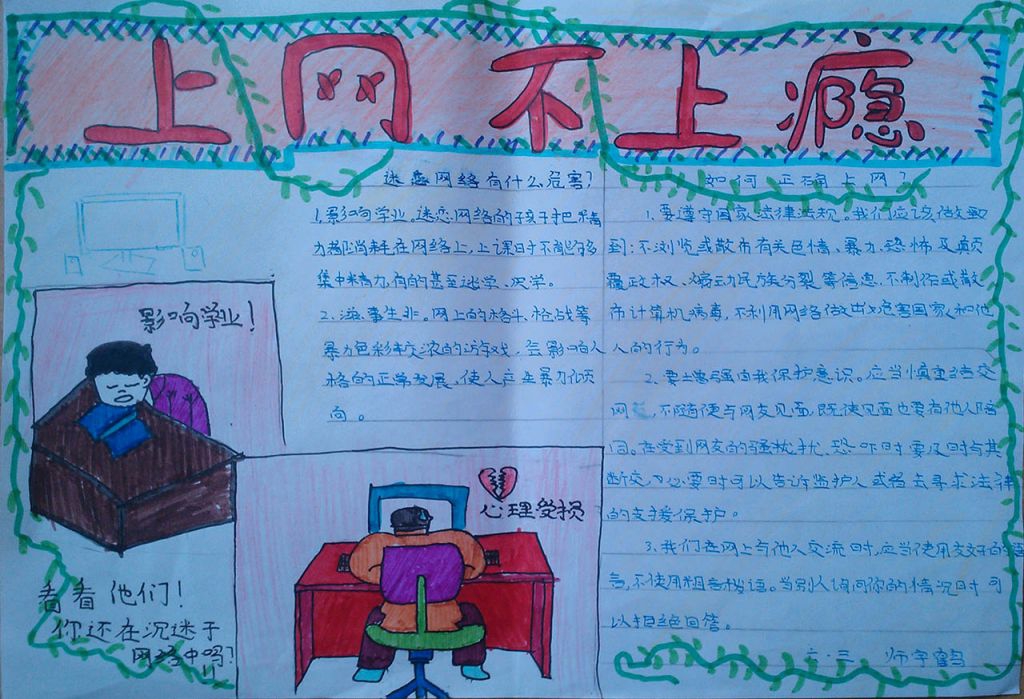 上网不上瘾
迷恋网络有什么危害?
1.影响学业。迷恋网络的孩子把精
力都消耗在网络上,上课时不能够
集中精力,有的甚至逃学、厌学。
2.滋事生非。网上的格斗、枪战等
暴力色彩较浓的游戏,会影响人
格的正常发展,使人产生暴力倾
向。
影响学业!
心理受损
看看他们!
你还在沉迷于
网络中吗?
如何正确上网?
1.要遵守国家法律法规。我们应该做致
到:不浏览或散布有关色情、暴力、恐怖及颠
覆政权、煽动民族分裂等信息,不制作或散
布计算机病毒,不利用网络做出危害国家和他
人的行为。
2.要增强自我保护意识。应当慎重结交
网友,不随便与网友见面,既使见面也要有他人陪
同。在受到网友的骚扰、恐吓时要及时与其
断交,必要时可以告诉监护人或者去寻求法律
的支援保护。
3.我们在网上与他人交流时,应当使用友好的语
言,不使用粗言秽语。当别人询问你的情况时可
以拒绝回答。
六·三 师宇鹤